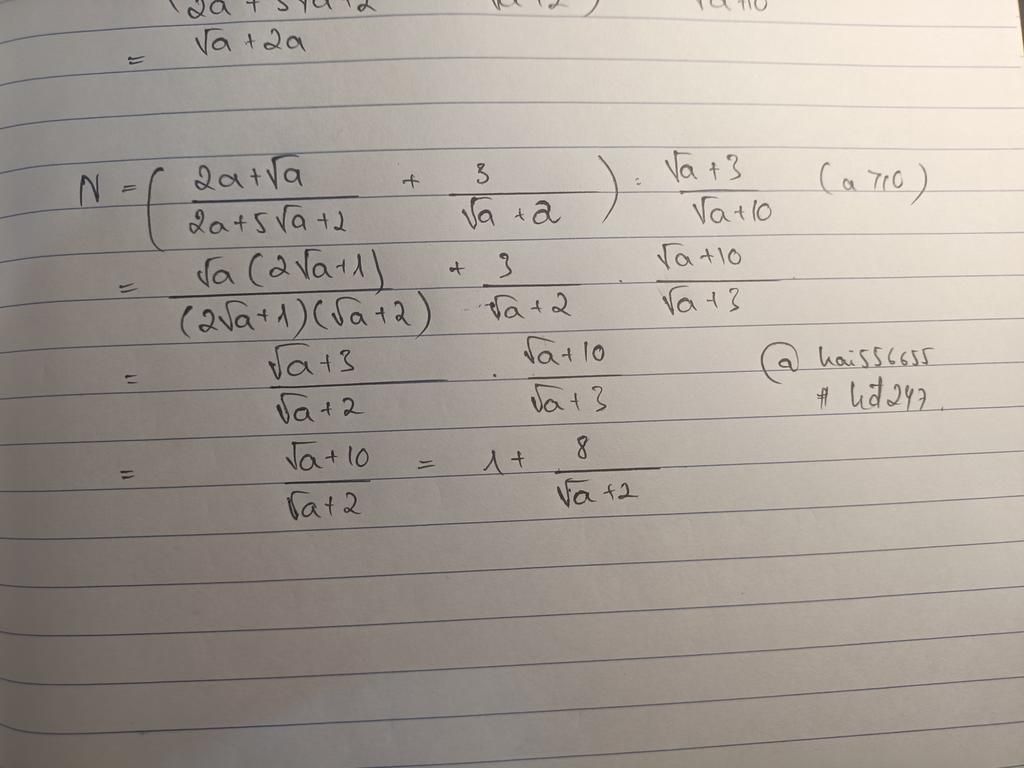 √a + 2a
=
N = ( (2a+√a)/(2a+5√a+2) + 3/(√a+2) ) : (√a+3)/(√a+10) (a ≥ 0)
= √a(2√a+1)/((2√a+1)(√a+2)) + 3/(√a+2) . (√a+10)/(√a+3)
= (√a+3)/(√a+2) . (√a+10)/(√a+3)
@ hai556655
# hđ247
= (√a+10)/(√a+2) = 1 + 8/(√a+2)